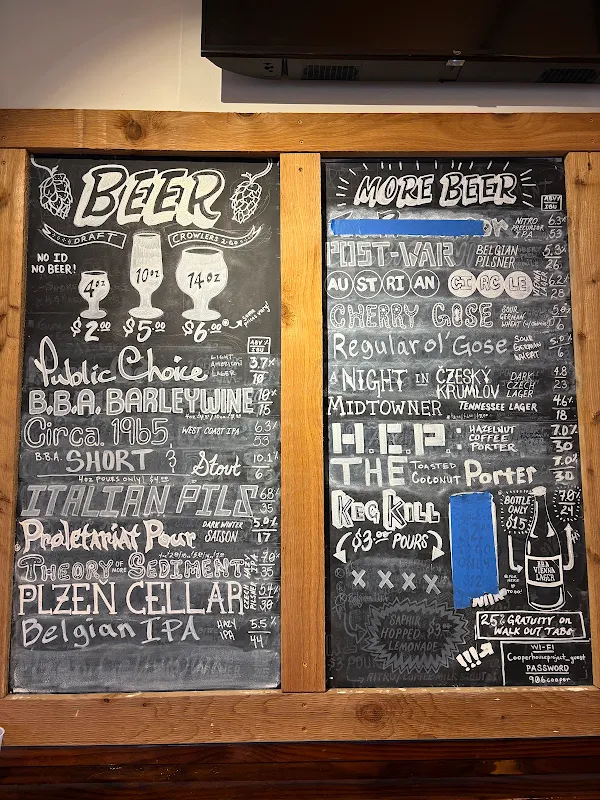 BEER
DRAFT
CROWLERS 2-GO
NO ID
NO BEER!
4oz
10oz
14oz
$2.00
$5.00
$6.00
some prices vary!
ABV %
IBU
Public Choice
LIGHT AMERICAN LAGER
3.7%
10
B.B.A. BARLEYWINE
15
Circa. 1965
WEST COAST IPA
6.3%
53
B.B.A. SHORT & Stout
10.1%
6
4oz POURS ONLY! $4.00
ITALIAN PILS
35
Proletariat Pour
DARK WINTER SAISON
5.0%
17
THEORY OF MORE SEDIMENT
HAZY IPA
7.0%
35
PLZEN CELLAR
CZECH PILSNER
5.4%
30
Belgian IPA
HAZY IPA
5.5%
44
MORE BEER
ABV%
IBU
NITRO
PRECURSOR
IPA
6.3%
53
POST-WAR
BELGIAN
PILSNER
5.3%
26
AUSTRIAN CIRCLE
6.2%
28
CHERRY GOSE
SOUR
GERMAN
WHEAT
5.0%
6
Regular ol' Gose
SOUR
GERMAN
WHEAT
5.0%
6
A NIGHT IN ČZESKÝ KRUMLOV
DARK
CZECH
LAGER
4.8
23
MIDTOWNER
TENNESSEE LAGER
4.6%
18
H.C.P.:
HAZELNUT
COFFEE
PORTER
7.0%
30
THE TOASTED COCONUT Porter
7.0%
30
KEG KILL
$3.00 POURS
X X X X
SAPHIR
HOPPED
LEMONADE
$3.00
!!!
BOTTLE
ONLY
$15
7.0%
24
FOR HERE
OR
TO GO!
BBA
VIENNA
LAGER
25% GRATUITY on
WALK OUT TABS
WI-FI
Cooperhouseproject_guest
PASSWORD
906cooper